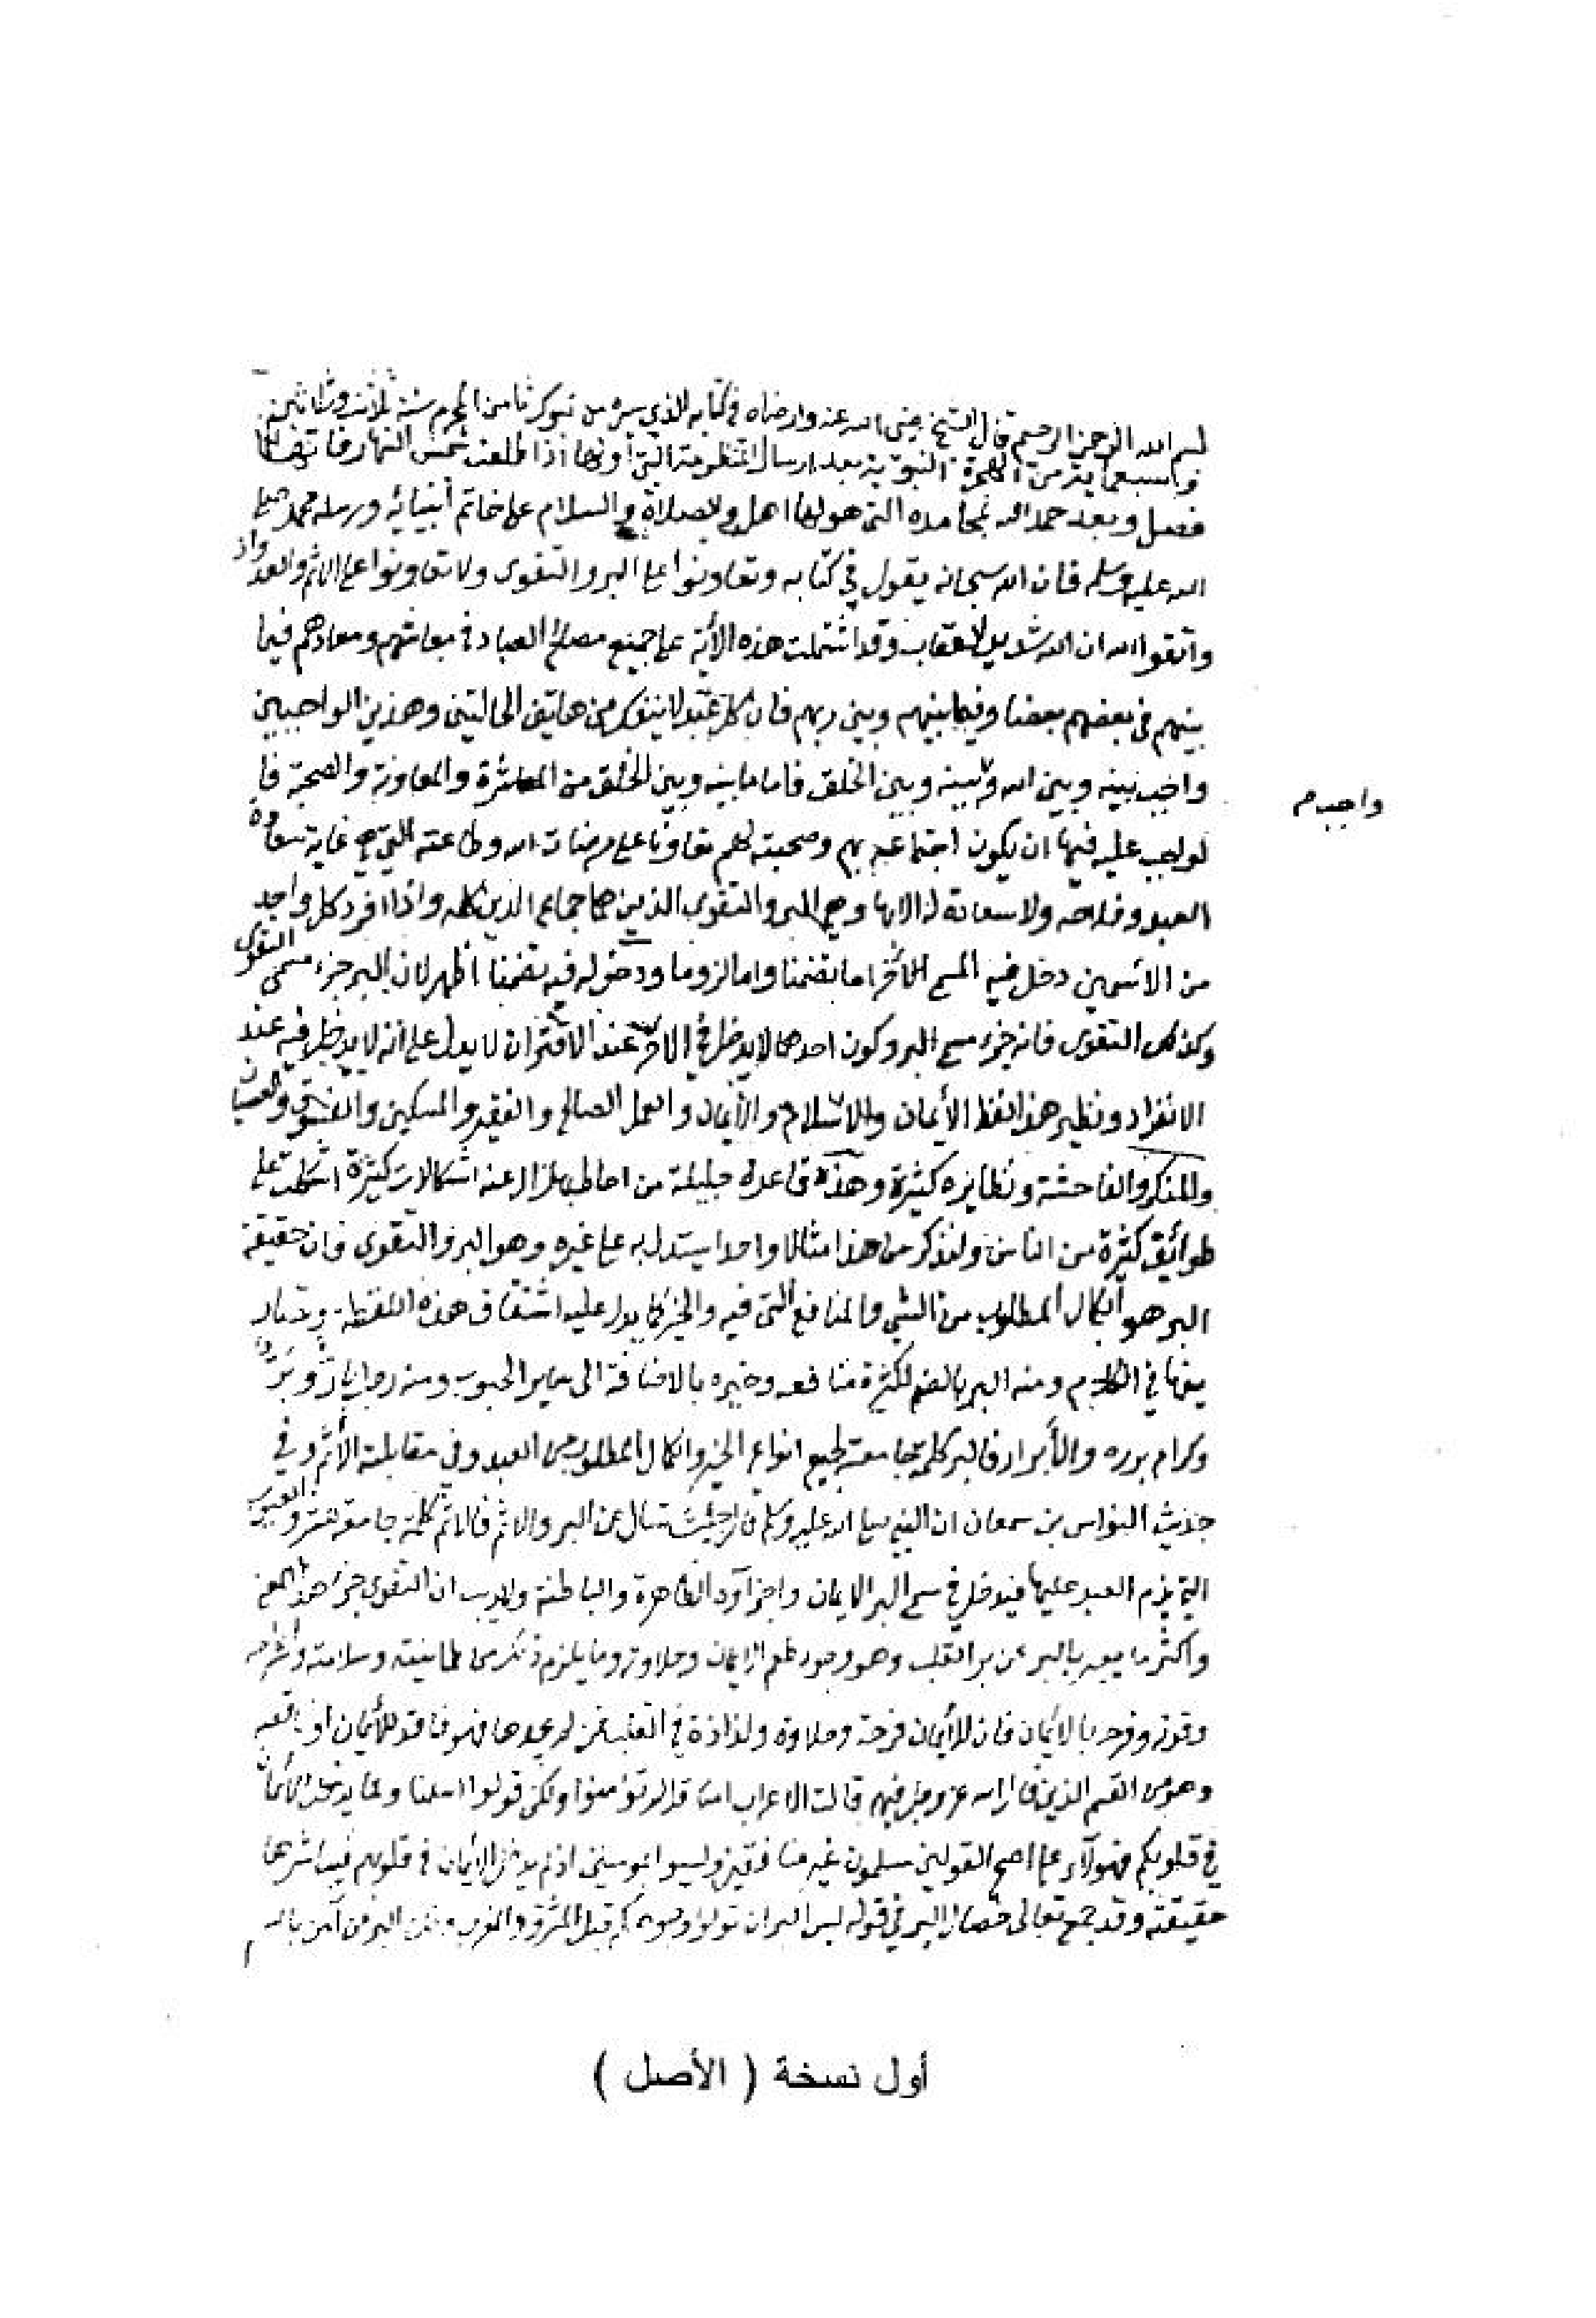 بسم الله الرحمن الرحيم قال الشيخ رضي الله عنه وارضاه في كتابه الذي سيره من تبوك ثامن المحرم سنة ثلاث وثلاثين
وسبعماية من الهجرة النبوية بعد ارسال المنظومة التي أولها اذا طلعت شمس النهار فانها
فصل وبعد حمد الله بمحامده التي هو لها اهل والصلاة والسلام على خاتم أنبيائه ورسله محمد صلى
الله عليه وسلم فان الله سبحانه يقول في كتابه وتعاونوا على البر والتقوى ولا تعاونوا على الاثم والعدوان
واتقوا الله ان الله شديد العقاب وقد اشتملت هذه الأية على جميع مصالح العباد في معاشهم ومعادهم فيما
بينهم في بعضهم بعضا وفيما بينهم وبين ربهم فان كل عبد لا ينفك من هاتين الحالتين وهذين الواجبين
واجب بينه وبين الله و بينه وبين الخلق فاما ما بينه وبين الخلق من المعاشرة والمعاونة والصحبة فا
واجب م
لواجب عليه فيها ان يكون اجتماعه بهم وصحبته لهم تعاونا على مرضات الله وطاعته التي هي غاية سعادة
العبد وفلاحه ولا سعادة له الا بها وهي البر والتقوى الذين هما جماع الدين كله واذا افرد كل واحد
من الاسمين دخل فيه المسمى الآخر اما تضمنا واما لزوما ودخوله فيه تضمنا اظهر لان البر جزء مسمى التقوى
وكذلك التقوى فانه جزء مسمى البر وكون احدهما لا يدخل في الاخر عند الاقتران لا يدل على انه لا يدخل فيه عند
الانفراد ونظير هذا لفظ الأيمان والاسلام والأيمان والعمل الصالح والفقير والمسكين والفسوق والعصيان
والمنكر والفاحشة ونظايره كثيرة وهذه قاعدة جليلة من احاط بها زال عنه اشكالات كثيرة اشكلت على
طوائف كثيرة من الناس ولنذكر من هذا مثالا واحدا يستدل به على غيره وهو البر والتقوى فان حقيقة
البر هو الكمال المطلوب من الشي والمنافع التي فيه والخير كما يدل عليه اشتقاق هذه اللفظة وتصار
يفها في الكلام ومنه البر بالضم لكثرة منافعه وخيره بالاضافة الى سائر الحبوب ومنه رجل بار وبر
وكرام برره والأبرار فالبر كلمة جامعة لجميع انواع الخير والكمال المطلوب من العبد وفي مقابلته الأثم وفي
حديث النواس بن سمعان ان النبي صلى الله عليه وسلم قال جئت تسال عن البر والاثم فالاثم كلمة جامعة للشر والعيوب
التي يذم العبد عليها فيدخل في مسمى البر الايمان واجزاؤه الظاهرة والباطنة ولا ريب ان التقوى جزء هذا المعنى
واكثر ما يعبر بالبر عن بر القلب وهو وجود طعم الايمان وحلاوته وما يلزم ذلك من طمانينته وسلامته وانشراحه
وقوته وفرحه بالايمان فان للأيمان فرحة وحلاوة ولذاذة في القلب فمن لم يجدها فهو فاقد للأيمان او ناقصه
وهو من القسم الذين قال الله عز وجل فيهم قالت الاعراب امنا قل لم تؤمنوا ولكن قولوا اسلمنا ولما يدخل الأيمان
في قلوبكم فهولاء على اصح القولين مسلمون غير منافقين وليسوا بمومنين اذ لم يدخل الأيمان في قلوبهم فيباشرها
حقيقته وقد جمع تعالى خصال البر في قوله ليس البر ان تولوا وجوهكم قبل المشرق والمغرب ولكن البر من آمن بالله
أول نسخة ( الأصل )